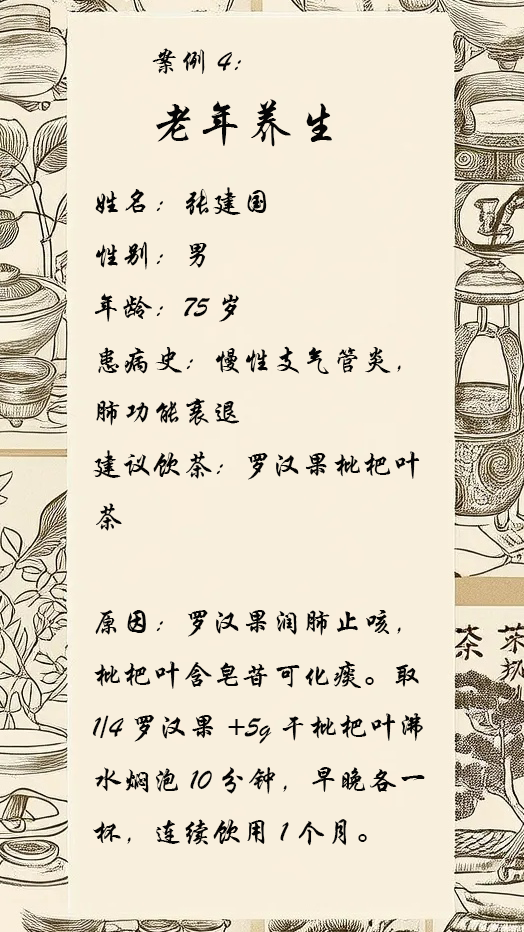 案例 4：
老年养生
姓名：张建国
性别：男
年龄：75 岁
患病史：慢性支气管炎，
肺功能衰退
建议饮茶：罗汉果枇杷叶
茶
原因：罗汉果润肺止咳，
枇杷叶含皂苷可化痰。取
1/4 罗汉果 +5g 干枇杷叶沸
水焖泡 10 分钟，早晚各一
杯，连续饮用 1 个月。
茶